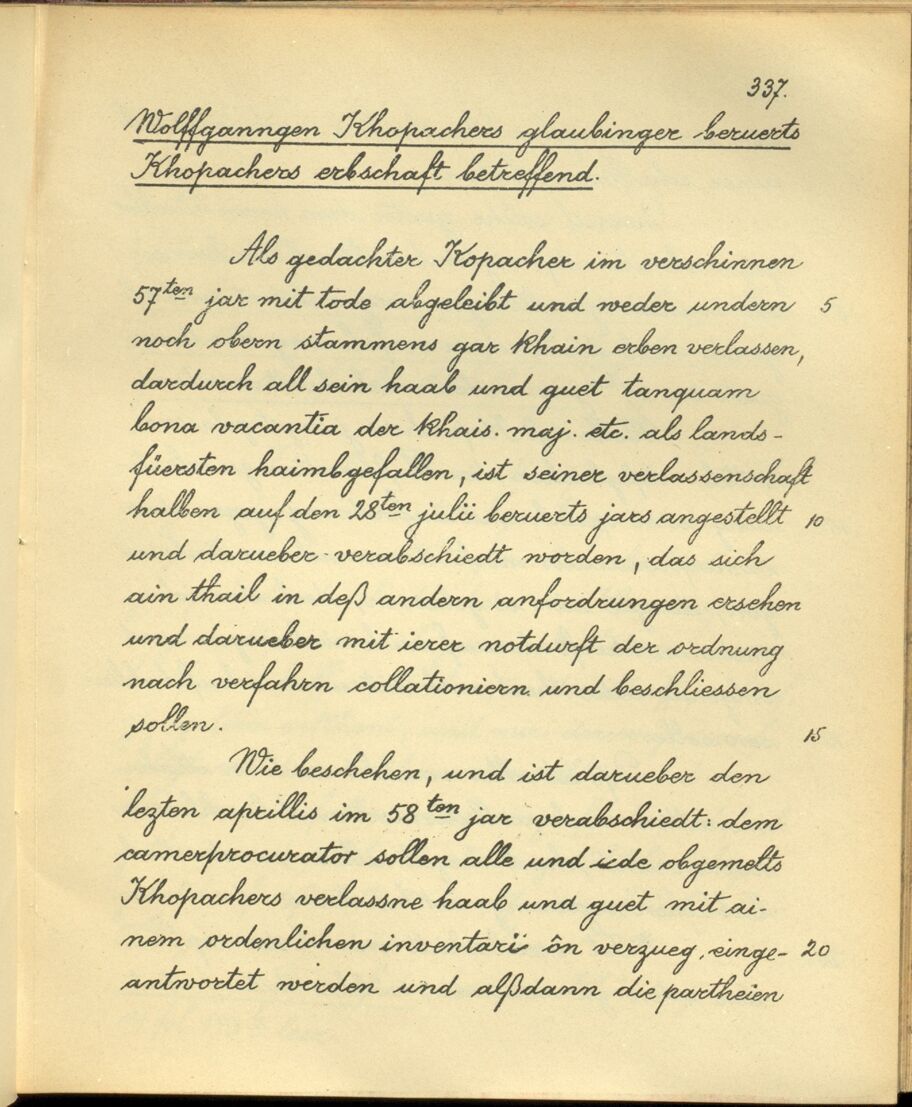 337.
Wolffganngen Khopachers glaubinger beruerts
Khopachers erbschaft betreffend.
Als gedachter Kopacher im verschinnen
57ten jar mit tode abgeleibt und weder undern 5
noch obern stammens gar khain erben verlassen,
dardurch all sein haab und guet tanquam
bona vacantia der khais. maj. etc. als lands-
füersten haimbgefallen, ist seiner verlassenschaft
halben auf den 28ten julii beruerts jars angestellt 10
und darueber verabschiedt worden, das sich
ain thail in deß andern anfordrungen ersehen
und darueber mit ierer notdurft der ordnung
nach verfahrn collationiern und beschliessen
sollen. 15
Wie beschehen, und ist darueber den
lezten aprillis im 58ten jar verabschiedt: dem
camerprocurator sollen alle und iede obgemelts
Khopachers verlassne haab und guet mit ai-
nem ordenlichen inventari ôn verzueg einge- 20
antwortet werden und alßdann die partheien